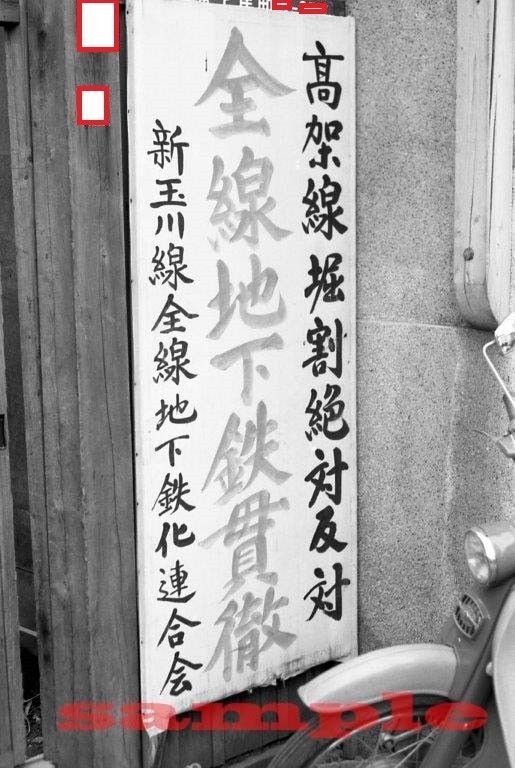 高架線堀割絶対反対
全線地下鉄貫徹
新玉川線全線地下鉄化連合会
sample